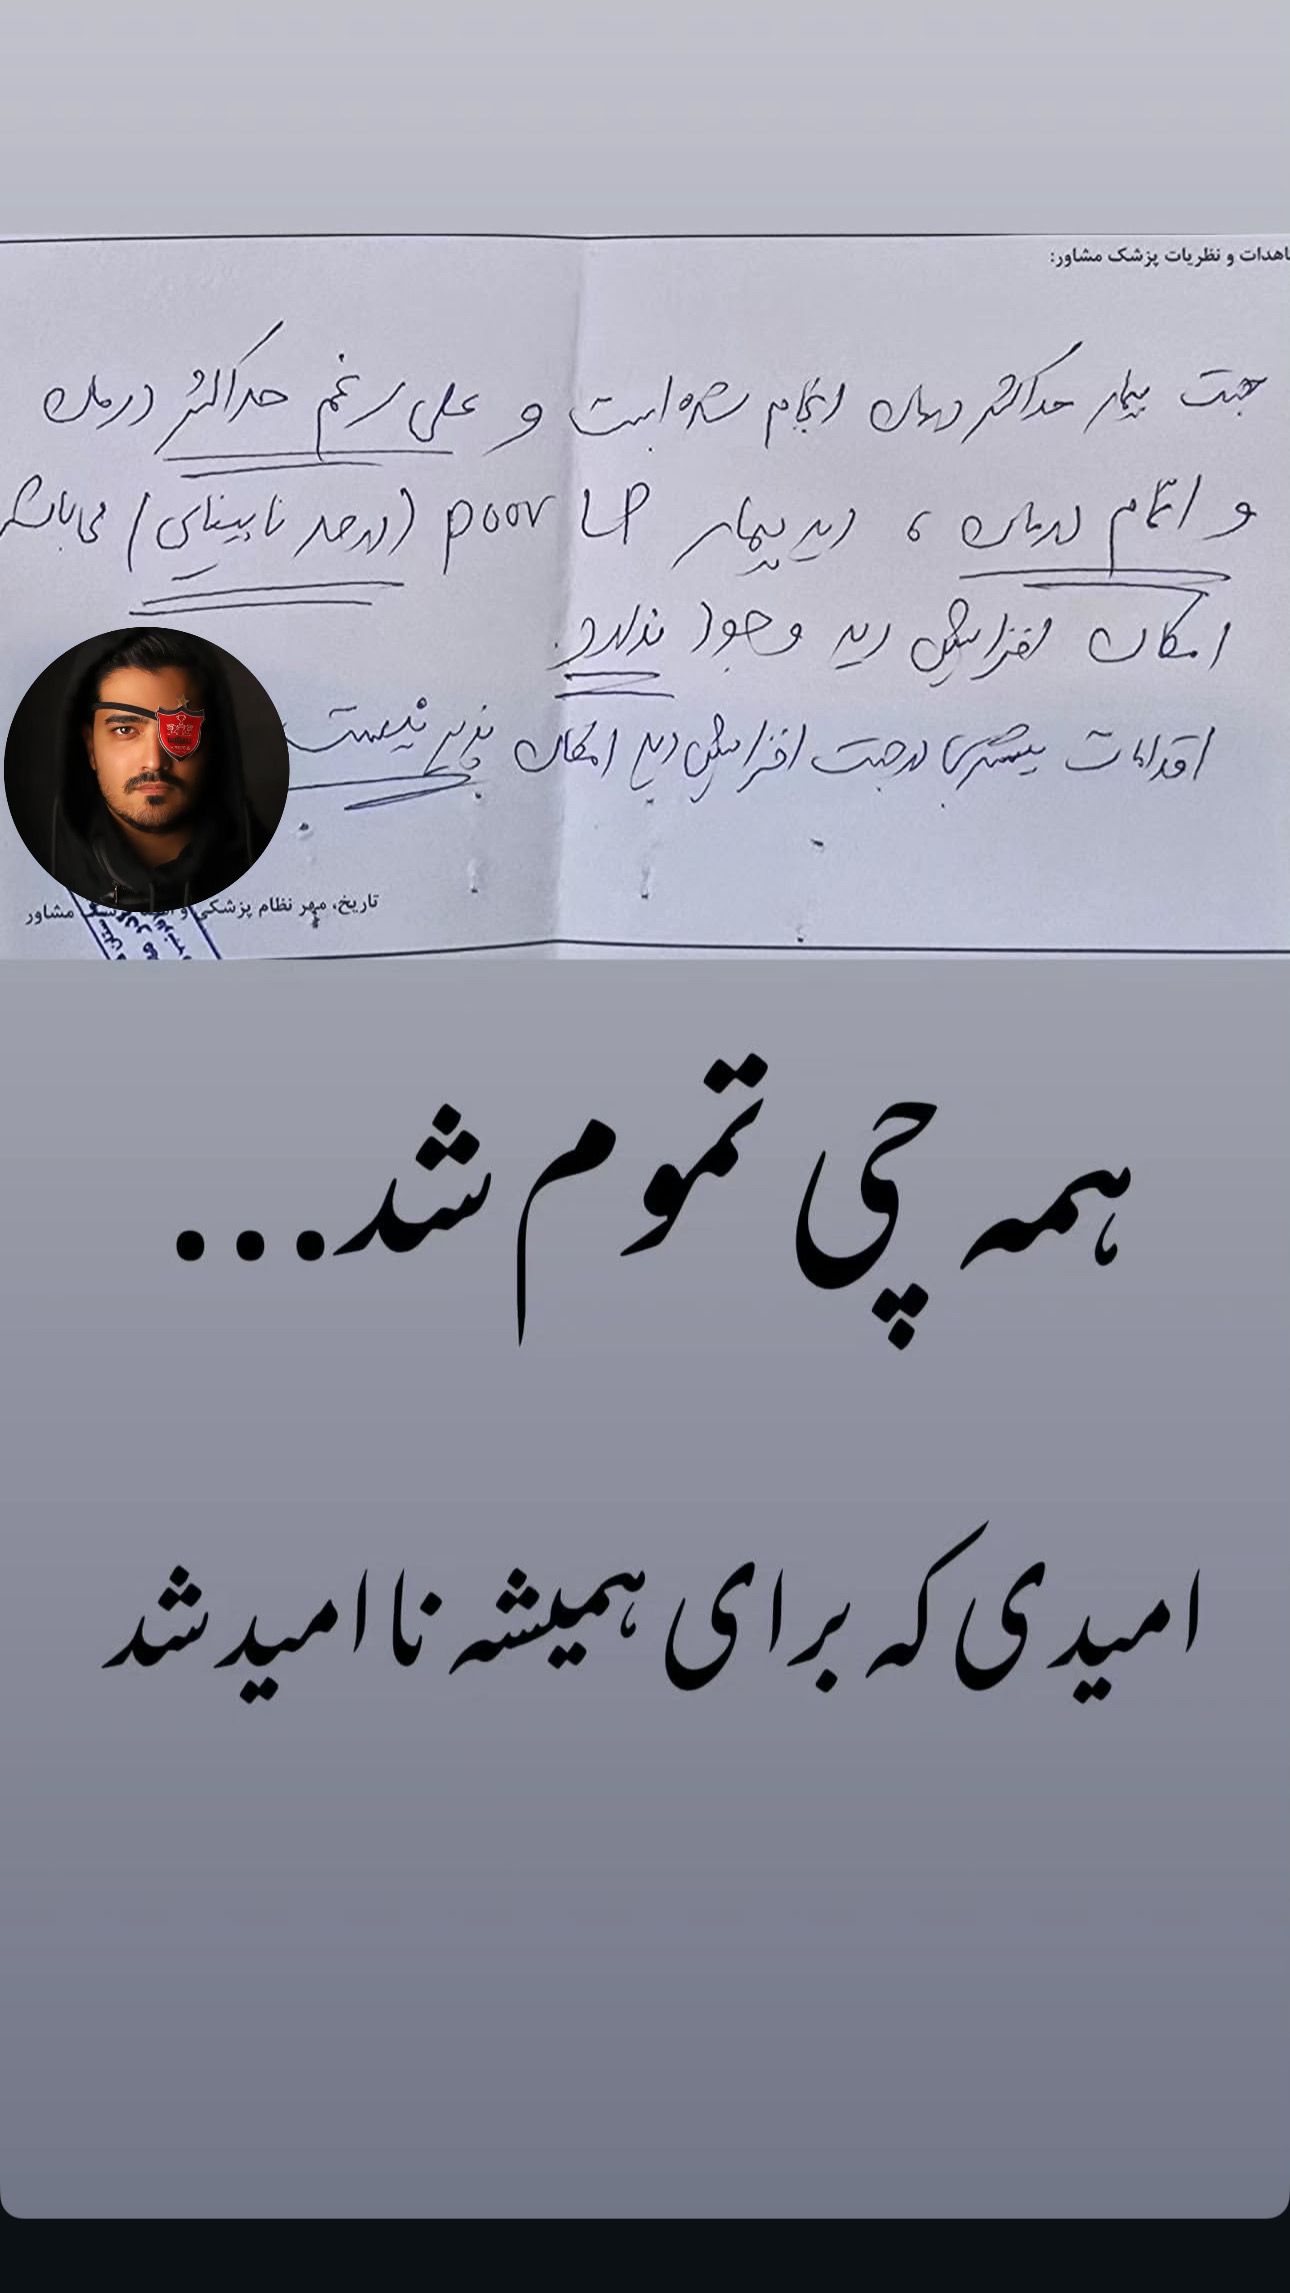 اهدات و نظریات پزشک مشاور:
جهت بیمار حداکثر درمان انجام شده است و علی رغم حداکثر درمان
و اتمام درمان، دید بیمار poor LP (در حد نابینایی) می باشد
امکان افزایش دید وجود ندارد.
اقدامات بیشتری در جهت افزایش دید امکان پذیر نیست
تاریخ، مهر نظام پزشکی و مشاور
همه چی تموم شد...
امیدی که برای همیشه نا امید شد